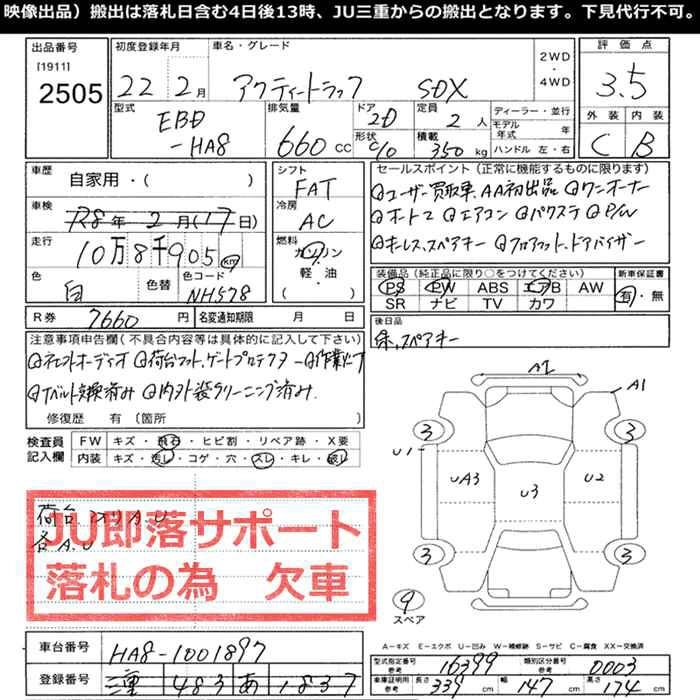 映像出品）搬出は落札日含む4日後13時、JU三重からの搬出となります。下見代行不可。
出品番号 初度登録年月 車名・グレード 2WD・4WD 評価点
[1911]
2505 22 2月 アクティートラック SDX 3.5
型式 排気量 ドア 2D 定員 2人 ディーラー・並行 外装 内装
EBD-HA8 660 CC 形状 積載 350 kg モデル年式 年 C B
ハンドル 左・右
車歴 シフト セールスポイント（正常に機能するものに限ります）
自家用・( ) FAT ユーザー買取車 AA初出品 ワンオーナー
車検 冷房 オートマ エアコン パワステ P/W
R8年 2月(17日) AC キーレス、スペアキー フロアマット、ドアバイザー
走行 燃料
10万8千905 km ガソリン・軽・油
装備品（純正品に限り○をつけてください） 新車保証書
色 色替 色コード PS PW ABS エアB AW 有・無
白 NH578 月 SR ナビ TV カワ
R券 7660円 名変通知期限 月 日 後日品
保、スペアキー
注意事項申告欄（不具合内容等は具体的に記入して下さい）
社外オーディオ 荷台マット、ゲートプロテクター
Tベルト交換済み 内外装クリーニング済み
修復歴 有（箇所 ）
検査員記入欄 FW キズ・飛石・ヒビ割・リペア跡・X要
内装 キズ・汚レ・コゲ・穴・スレ・キレ・破レ
A1 A1
3 3
U1 UA3 U3 U2
3 3
9
スペア
荷台 A.U
各A.U
JU即落サポート
落札の為 欠車
A－キズ E－エクボ U－凹み W－補修跡 S－サビ C－腐食 XX－交換済
車台番号 HA8-1001897 型式指定番号 参考 16399 類別区分番号 参考 0003
登録番号 三重 483 あ 1837 車庫証明用 参考 長さ 339 cm 幅 147 cm 高さ 174 cm